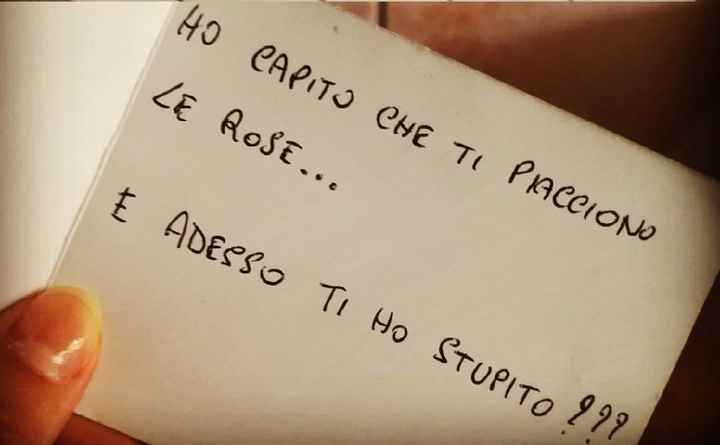 HO CAPITO CHE TI PIACCIONO
LE ROSE...
E ADESSO TI HO STUPITO???